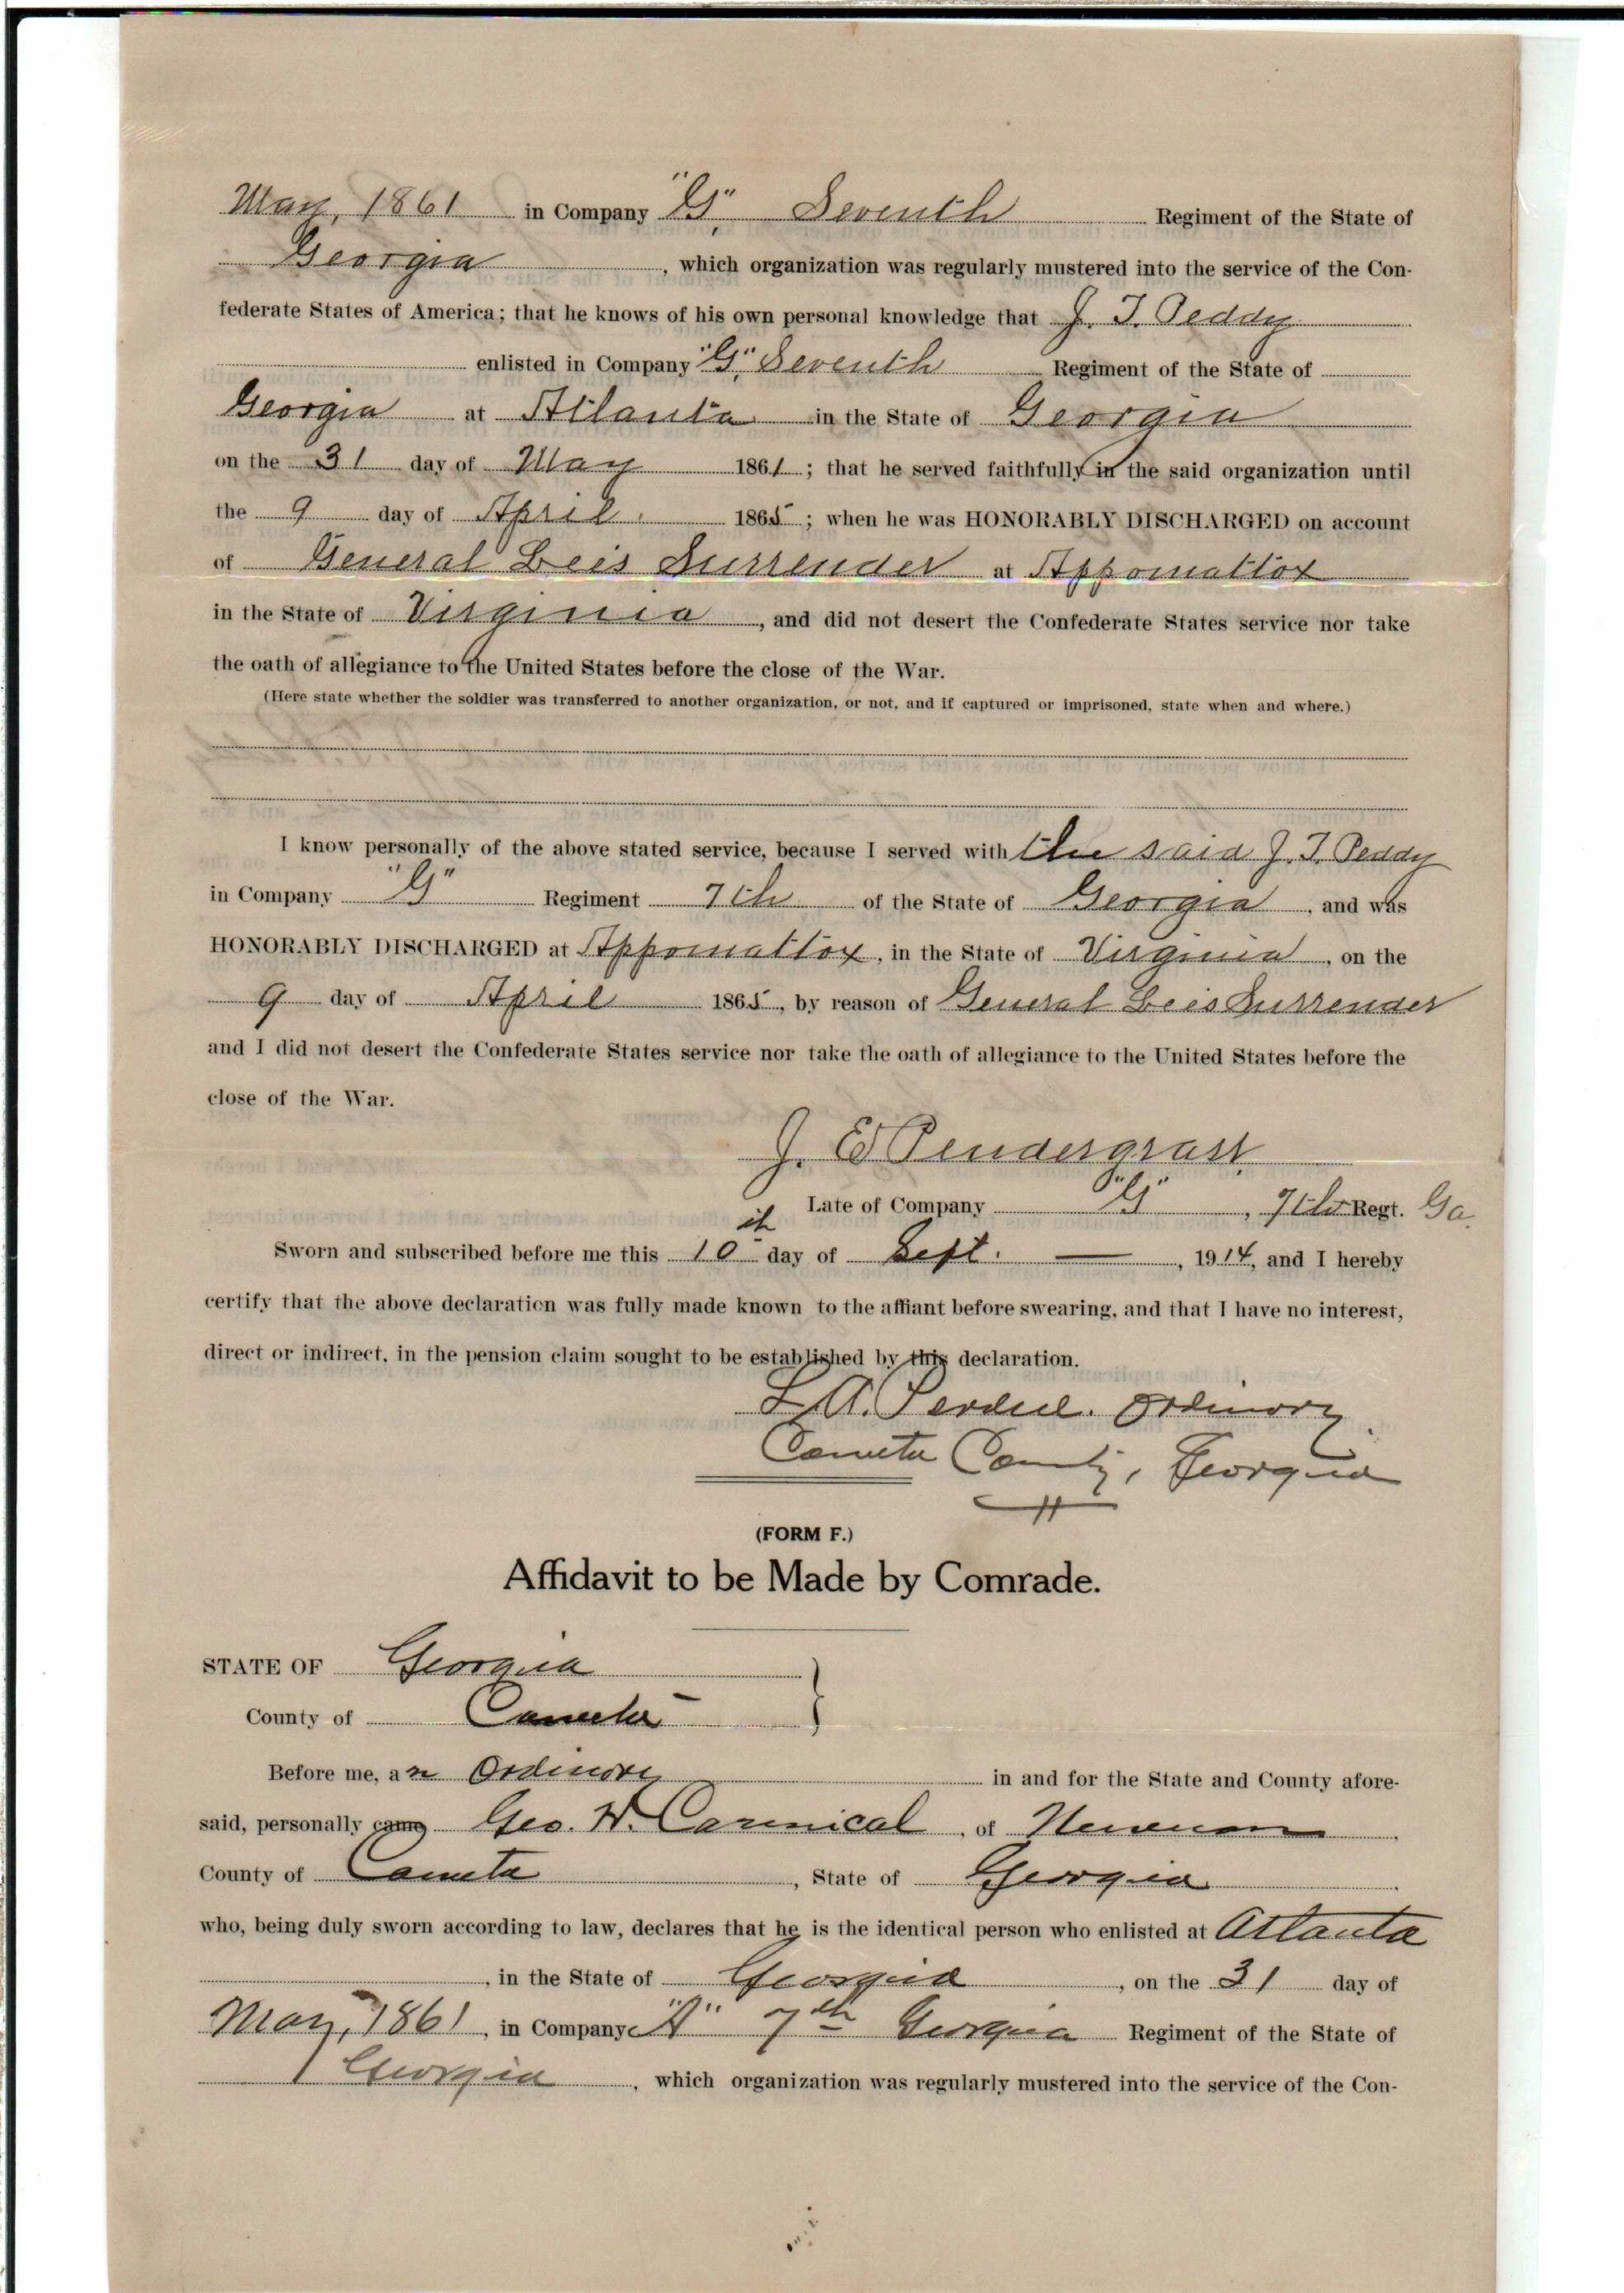 May, 1861 in Company "G", Seventh Regiment of the State of
Georgia, which organization was regularly mustered into the service of the Con-
federate States of America; that he knows of his own personal knowledge that J. T. Peddy
enlisted in Company "G", Seventh Regiment of the State of
Georgia at Atlanta in the State of Georgia
on the 31 day of May 1861; that he served faithfully in the said organization until
the 9 day of April. 1865; when he was HONORABLY DISCHARGED on account
of General Lees Surrender at Appomattox
in the State of Virginia, and did not desert the Confederate States service nor take
the oath of allegiance to the United States before the close of the War.
(Here state whether the soldier was transferred to another organization, or not, and if captured or imprisoned, state when and where.)
I know personally of the above stated service, because I served with the said J. T. Peddy
in Company "G" Regiment 7th of the State of Georgia, and was
HONORABLY DISCHARGED at Appomattox, in the State of Virginia, on the
9 day of April 1865, by reason of General Lees Surrender
and I did not desert the Confederate States service nor take the oath of allegiance to the United States before the
close of the War.
J. E Pendergrast
Late of Company "G", 7th Regt. Ga.
Sworn and subscribed before me this 10th day of Sept. —, 1914, and I hereby
certify that the above declaration was fully made known to the affiant before swearing, and that I have no interest,
direct or indirect, in the pension claim sought to be established by this declaration.
L. A. Perdue. Ordinary
Coweta County, Georgia
(FORM F.)
Affidavit to be Made by Comrade.
STATE OF Georgia
County of Coweta
Before me, an Ordinary in and for the State and County afore-
said, personally came Geo. W. Carmical, of Newnan
County of Coweta, State of Georgia.
who, being duly sworn according to law, declares that he is the identical person who enlisted at Atlanta
, in the State of Georgia, on the 31 day of
May, 1861, in Company "A" 7th Georgia Regiment of the State of
Georgia, which organization was regularly mustered into the service of the Con-